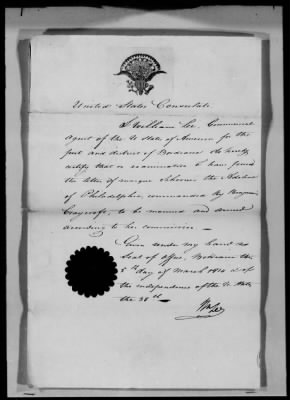 United States Consulate
I William Lee, Commercial
agent of the U. State of America for the
port and district of Bordeaux do hereby
certify that on examination I have found
the letter of marque Schooner the
of Philadelphia, commanded by Benjamin
to be manned and armed
according to her commission.
Given under my hand and
Seal of office, Bordeaux the
5th day of March 1814 & of
the independence of the U. State
the 38th
Wm Lee